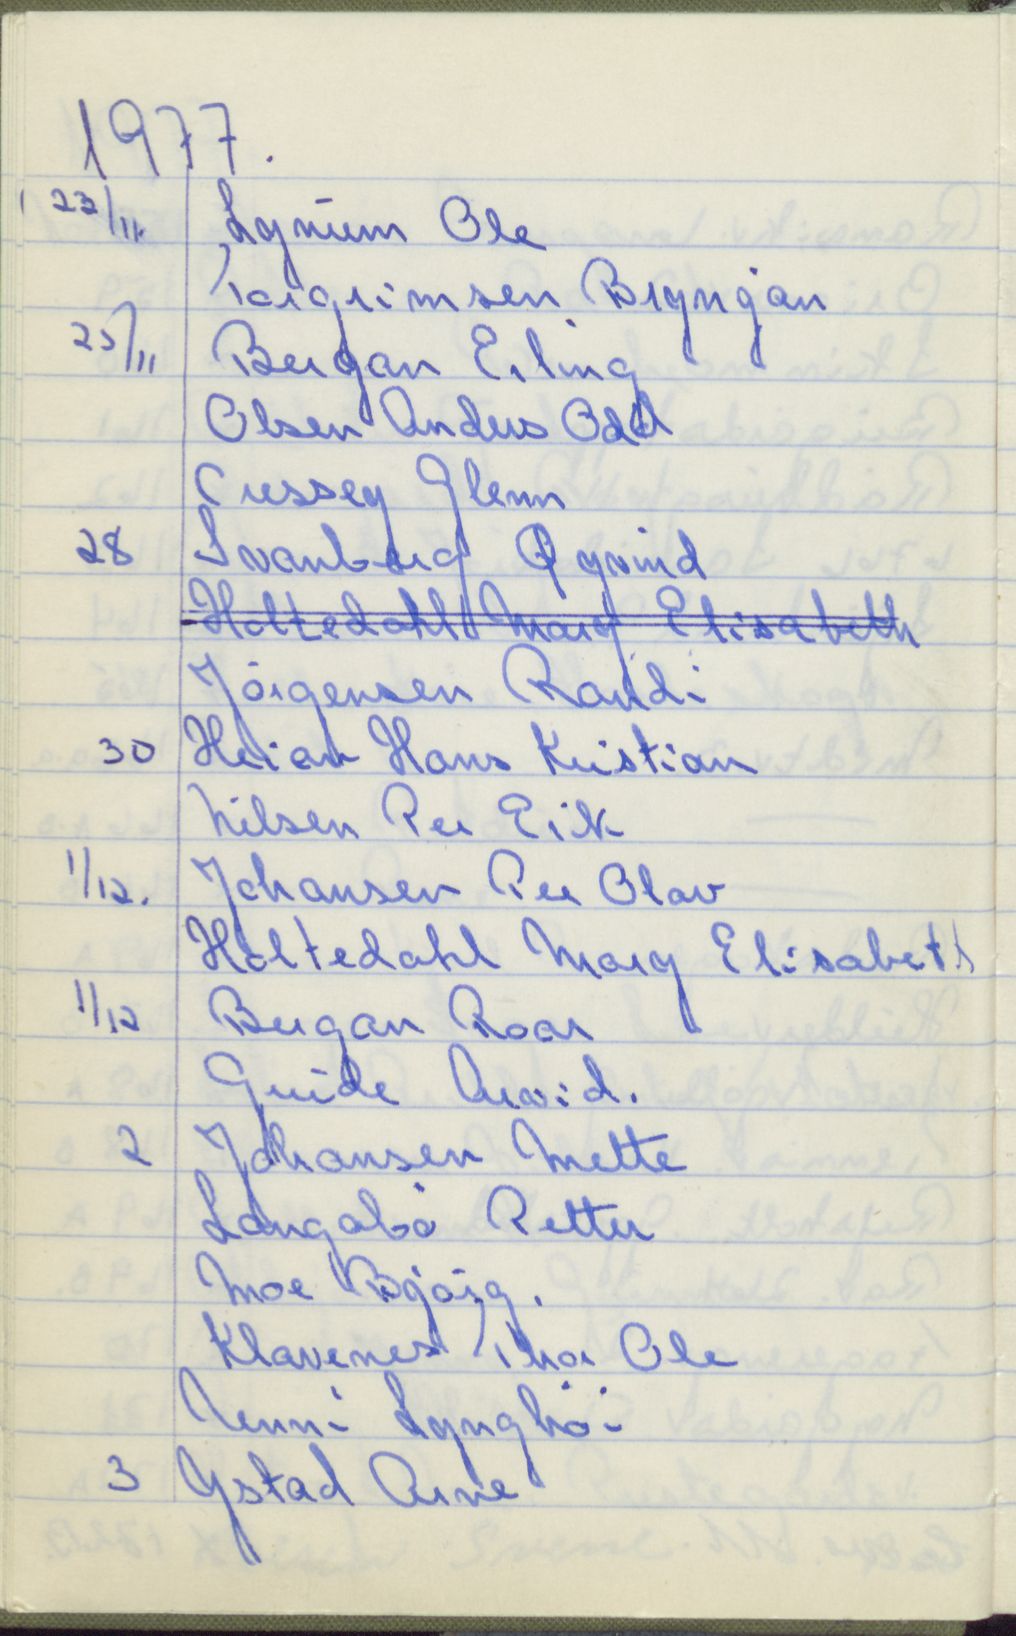 1977.
23/11 Lynum Ole
Torgrimsen Brynjan
25/11 Bergan Erling
Olsen Anders Odd
Cressey Glenn
28 Svanberg Øyvind
Holtedahl Mary Elisabeth
Jörgensen Randi
30 Heian Hans Kristian
Nilsen Per Erik
1/12. Johansen Per Olav
Holtedahl Mary Elisabeth
1/12 Bergan Roar
Greide Arvid.
2 Johansen Mette
Langabö Petter
Moe Björg.
Klavenes Thor Ole
Lynghöi
3 Ystad Arne